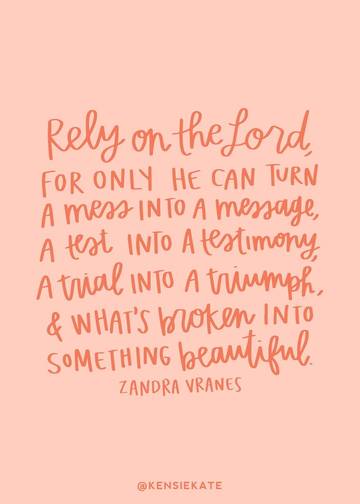 Rely on the Lord,
FOR ONLY HE CAN TURN
A mess INTO A message,
A test INTO A testimony,
A trial INTO A triumph,
& WHAT'S broken INTO
SOMETHING beautiful.
ZANDRA VRANES
@KENSIEKATE